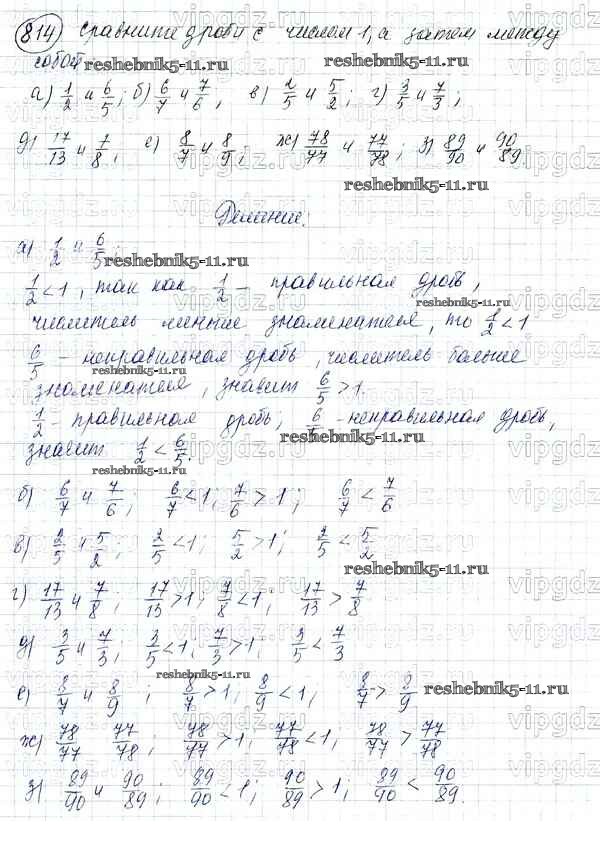 814) Сравните дроби с числом 1, а затем между
собой
reshebnik5-11.ru reshebnik5-11.ru
а) 1/2 и 6/5; б) 6/7 и 7/6, в) 2/5 и 5/2; г) 3/5 и 7/3;
д) 17/13 и 7/8; е) 8/7 и 8/9; ж) 78/77 и 77/78; з) 89/90 и 90/89.
reshebnik5-11.ru
Решение:
а) 1/2 и 6/5
reshebnik5-11.ru
1/2 < 1, так как 1/2 - правильная дробь,
reshebnik5-11.ru
числитель меньше знаменателя, то 1/2 < 1
6/5 - неправильная дробь, числитель больше
reshebnik5-11.ru
знаменателя, значит 6/5 > 1.
1/2 - правильная дробь; 6/5 - неправильная дробь,
reshebnik5-11.ru
значит 1/2 < 6/5.
reshebnik5-11.ru
б) 6/7 и 7/6; 6/7 < 1; 7/6 > 1; 6/7 < 7/6
в) 2/5 и 5/2; 2/5 < 1; 5/2 > 1; 2/5 < 5/2
reshebnik5-11.ru
г) 17/13 и 7/8; 17/13 > 1; 7/8 < 1; 17/13 > 7/8
д) 3/5 и 7/3; 3/5 < 1; 7/3 > 1; 3/5 < 7/3
reshebnik5-11.ru
е) 8/7 и 8/9; 8/7 > 1; 8/9 < 1; 8/7 > 8/9
reshebnik5-11.ru
ж) 78/77 77/78; 78/77 > 1; 77/78 < 1; 78/77 > 77/78
з) 89/90 и 90/89; 89/90 < 1; 90/89 > 1; 89/90 < 90/89.
vipgdz.ru